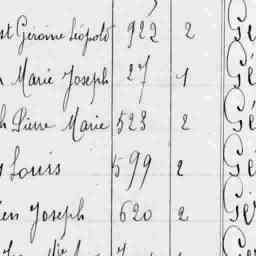 st Gérome Léopold 922 2 Gé
Marie Joseph 27 1 Gé
h Pierre Marie 523 2 Gé
Louis 599 2 Gé
en Joseph 620 2 Gé